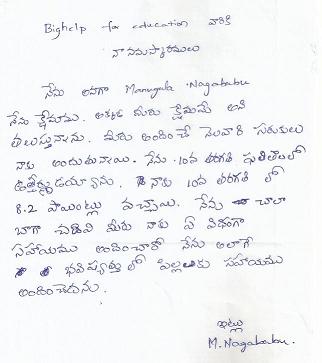 Bighelp for education వారికి
నా నమస్కారములు
నేను అనగా Manugula Nagababu
నేను క్షేమము. అక్కడ మీరు క్షేమమే అని
తలుస్తున్నాను. మీరు అందించే నెలవారి సరుకులు
నాకు అందుతున్నాయి. నేను 10వ తరగతి ఫలితాలలో
ఉత్తీర్ణుడయ్యాను. నాకు 10వ తరగతి లో
8.2 పాయింట్లు వచ్చాయి. నేను చాలా
బాగా చదివి మీరు నాకు ఏ విధంగా
సహాయము అందించారో నేను అలాగే
భవిష్యత్తు లో పిల్లలకు సహాయము
అందించెదను.
ఇట్లు
M. Nagababu.